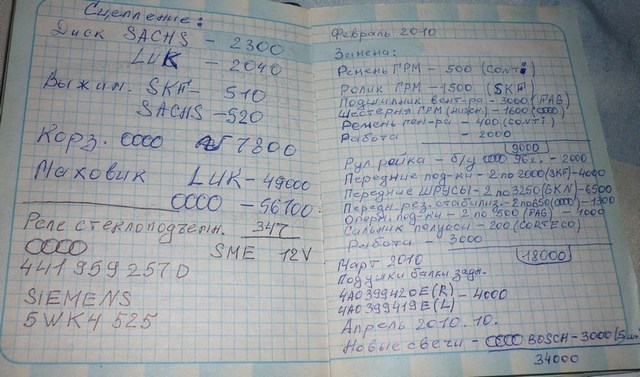 Сцепление:
Диск SACHS - 2300
LUK - 2040
Выжим. SKF - 510
SACHS - 520
Корз. 7800
Маховик LUK - 49000
- 56100
Реле стеклоподъемн. 347
SME 12V
441 959 257 D
SIEMENS
5WK4 525
Февраль 2010
Замена:
Ремень ГРМ - 500 (CONTi)
Ролик ГРМ - 1500 (SKF)
Подшипник вент-ра - 3000 (FAG)
Шестерня ГРМ - 1600
Ремень ген-ра - 400 (CONTi)
Работа - 2000
9000
Рул. рейка - б/у 96 г. - 2000
Передние под-ки - 2 по 2000 (SKF) - 4000
Передние ШРУСЫ - 2 по 3250 - 6500
Передн. рез. стабилиз. - 2 по 650 - 1300
Опорн. под-ки - 2 по 500 (FAG) - 1000
Сальник полуоси - 200 (CORTECO)
Работа - 3000
18000
Март 2010
Подушки балки задн.
4A0399420E (R) - 4000
4A0399419E (L)
Апрель 2010. 10.
Новые свечи - BOSCH - 3000 (5 шт)
34000